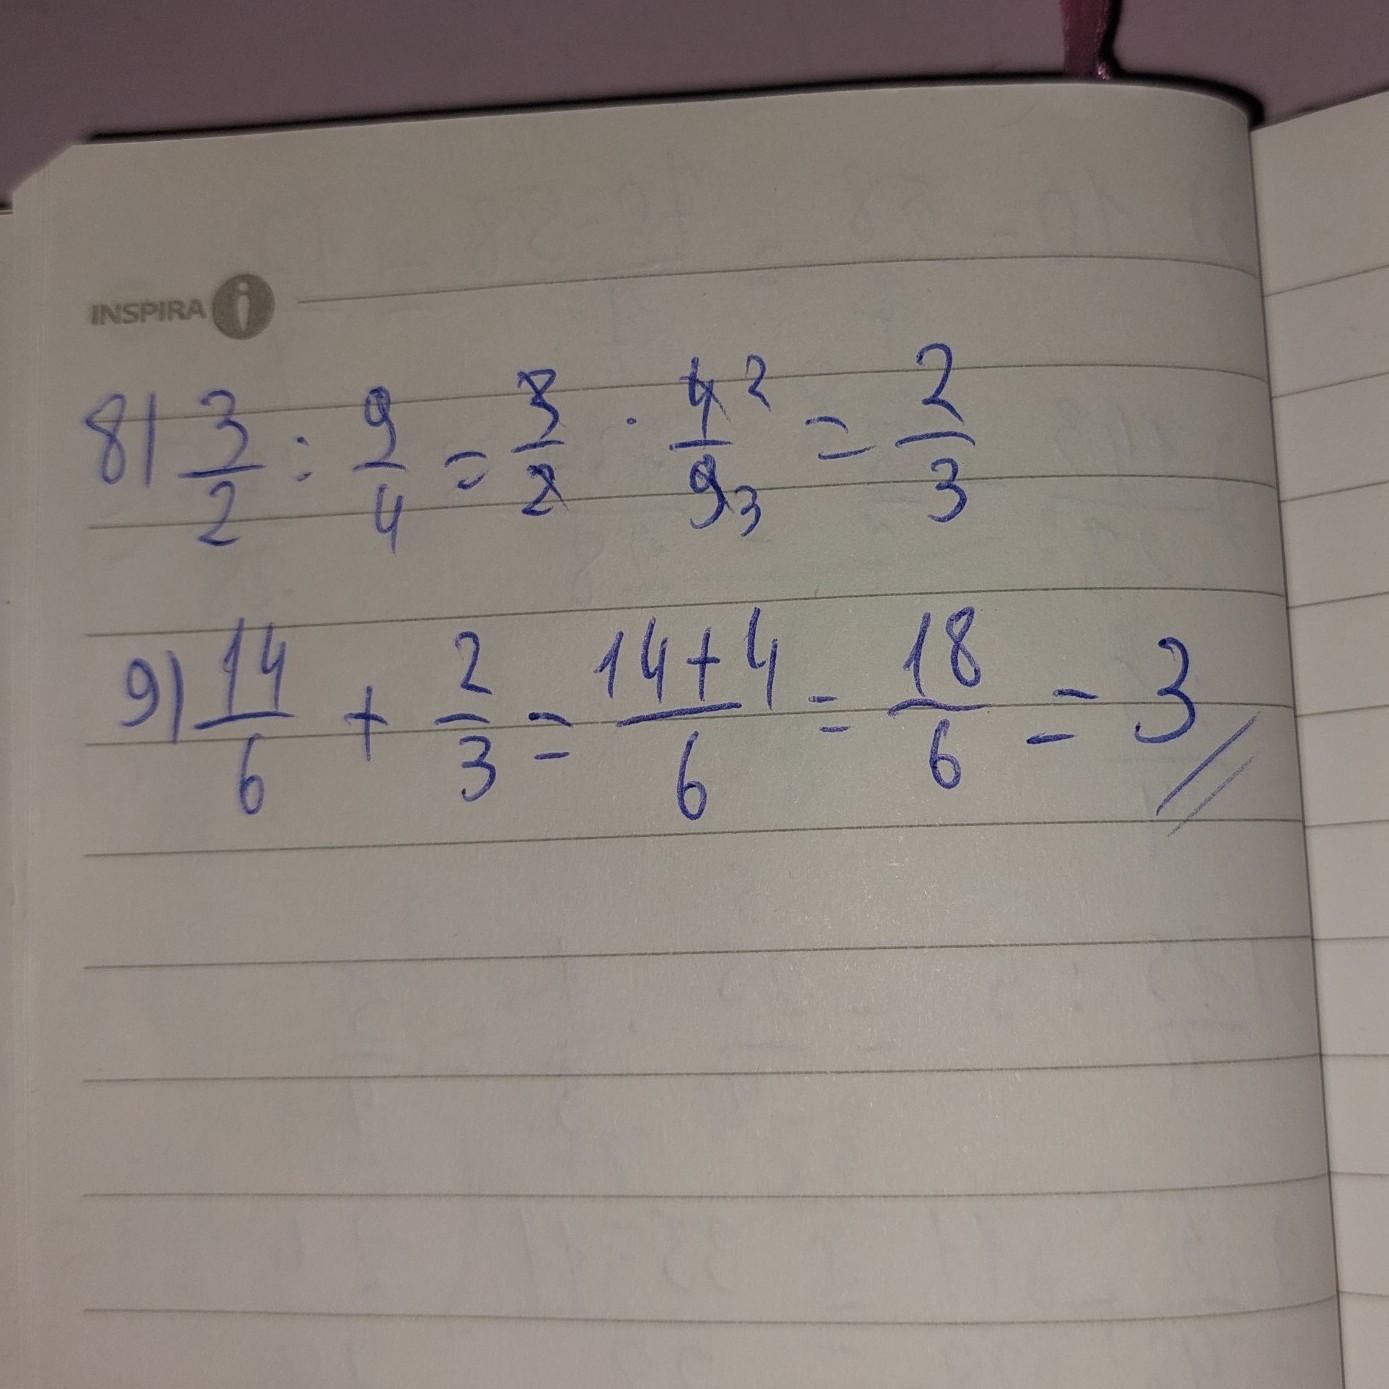 INSPIRA i
8) 3/2 : 9/4 = 3/2 · 4 2/9 3 = 2/3
9) 14/6 + 2/3 = 14+4/6 = 18/6 = 3//